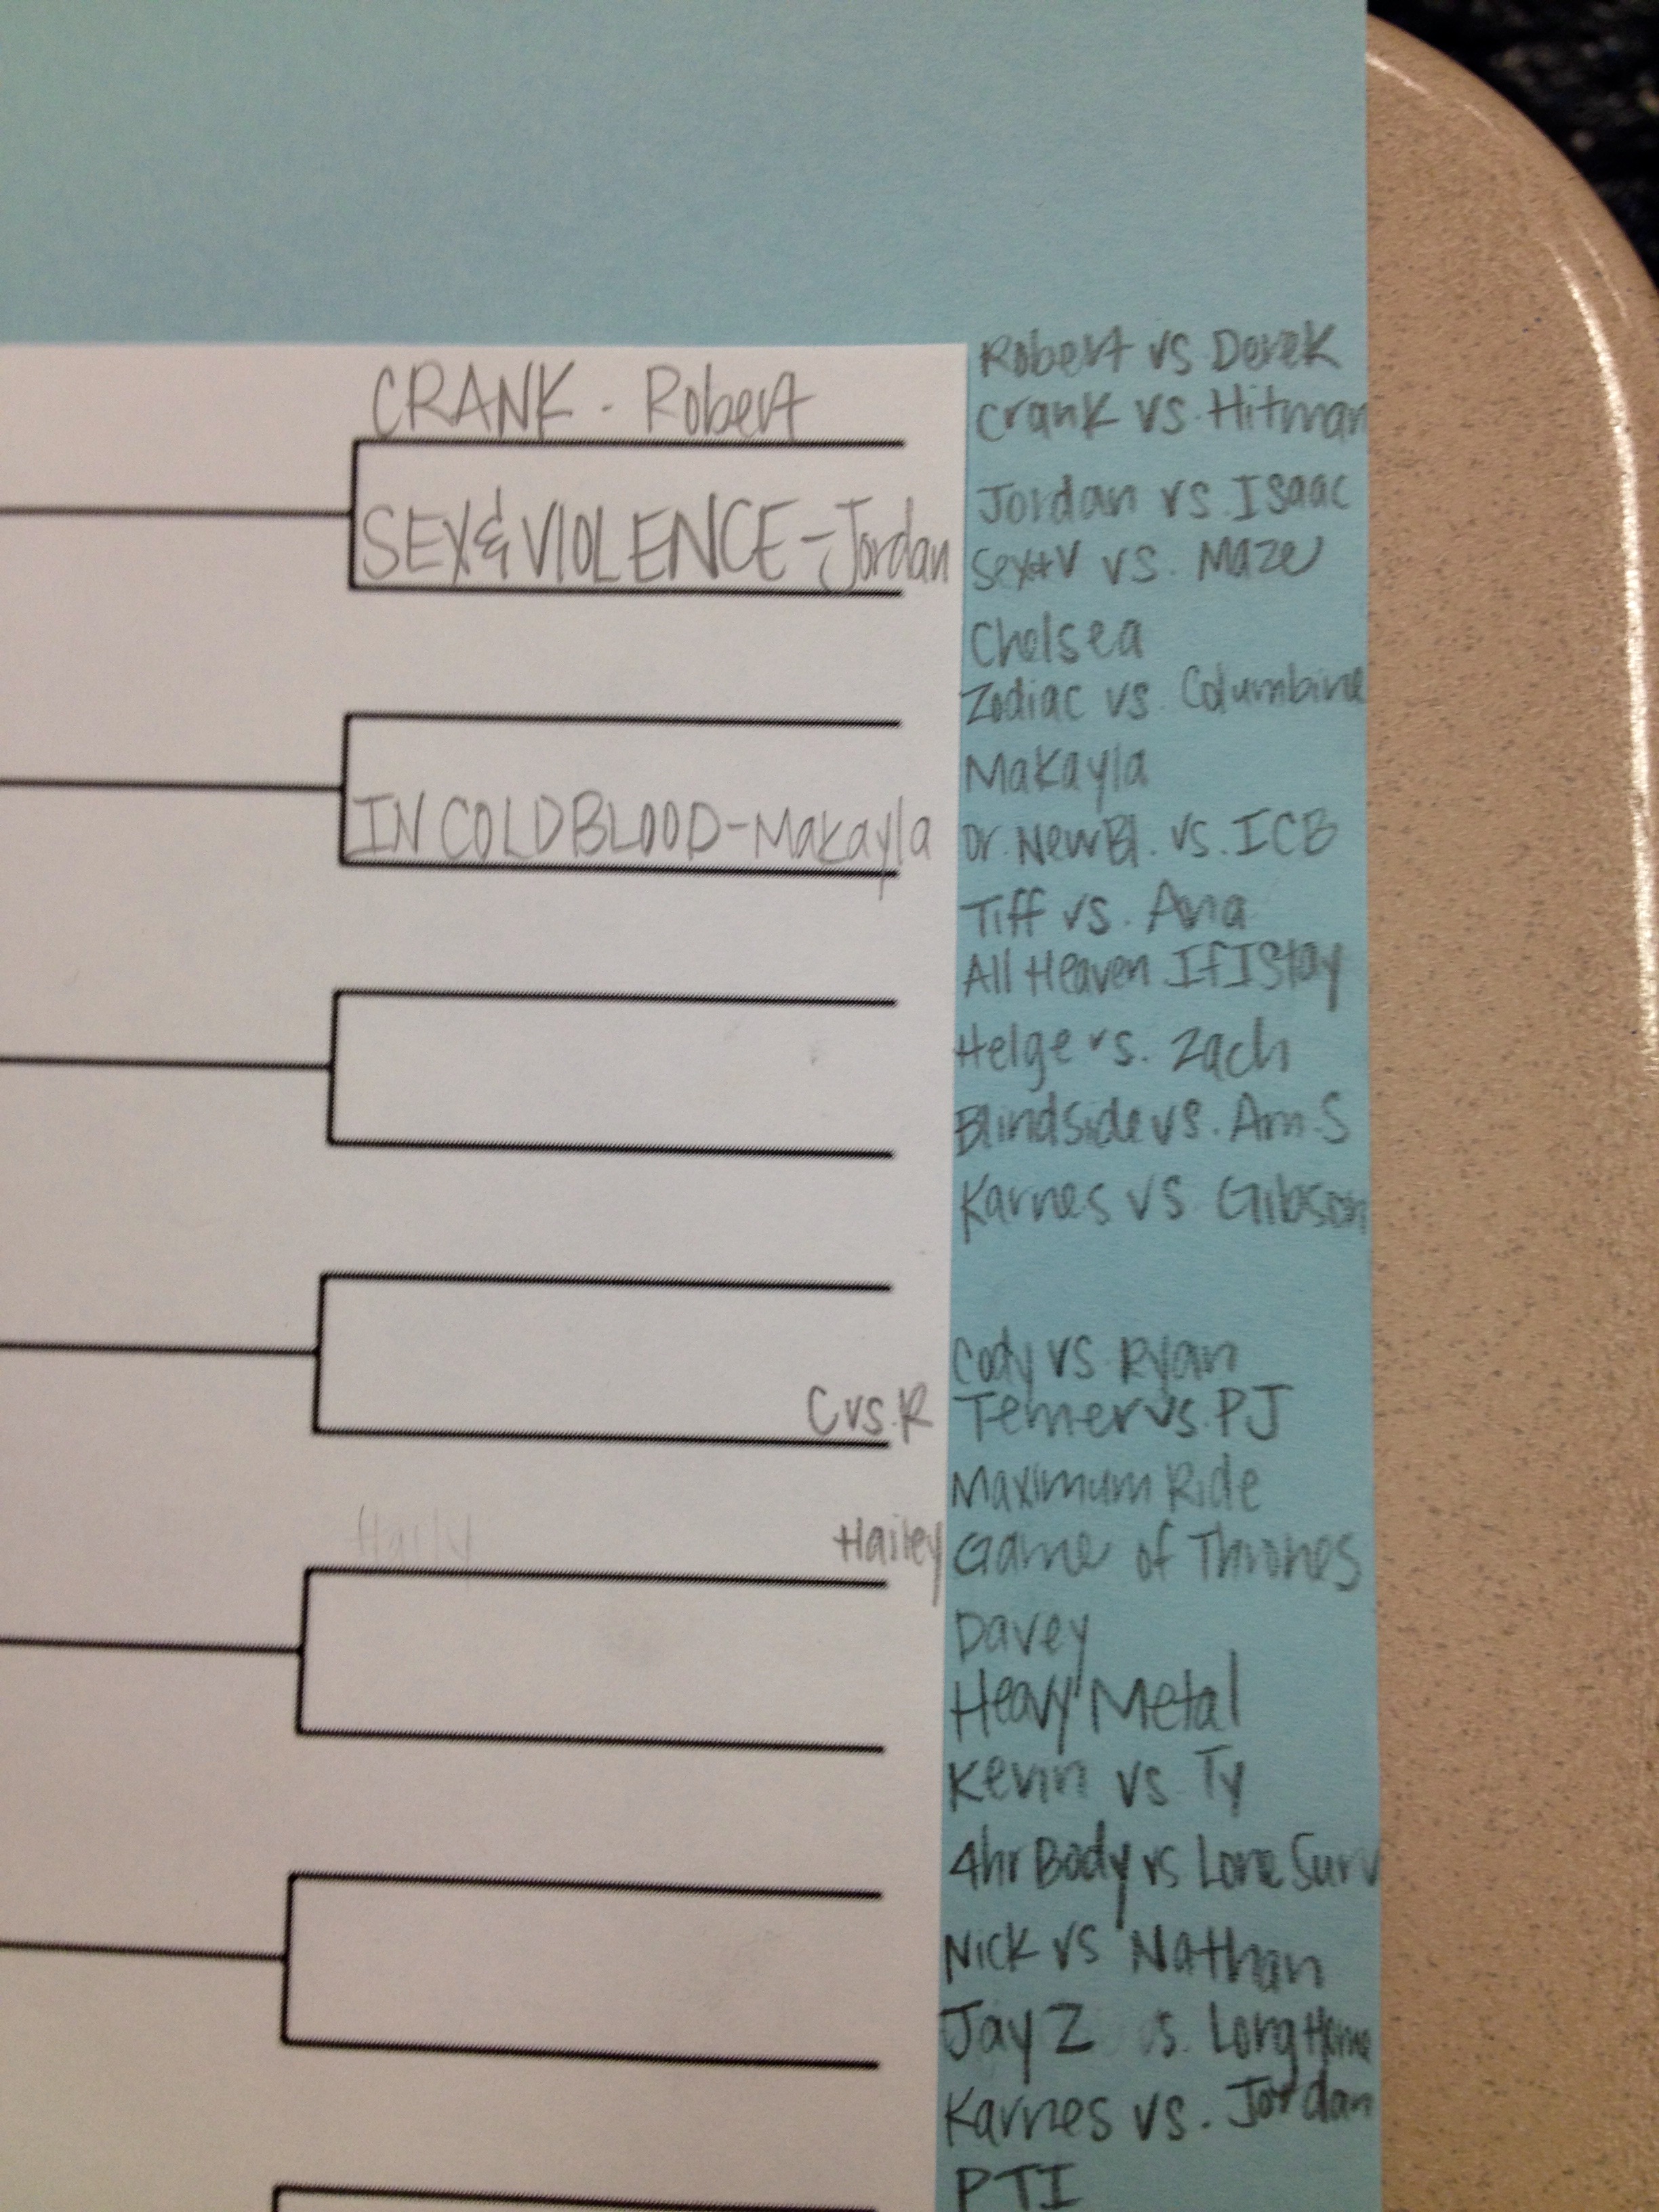 CRANK - Robert
SEX & VIOLENCE - Jordan
IN COLD BLOOD - Makayla
C vs. R
Hailey
Robert vs Derek
Crank vs. Hitman
Jordan vs. Isaac
Sex+V vs. Maze
Chelsea
Zodiac vs. Columbine
Makayla
or NewBl. vs. ICB
Tiff vs. Ana
All Heaven If I Stay
Helge vs. Zach
Blindside vs. Am. S
Karnes vs. Gibson
Cody vs Ryan
vs. PJ
Maximum Ride
Game of Thrones
Davey
Heavy Metal
Kevin vs. Ty
4hr Body vs Lone Surv
Nick vs Nathan
Jay Z s. Long Home
Karnes vs. Jordan
PTI